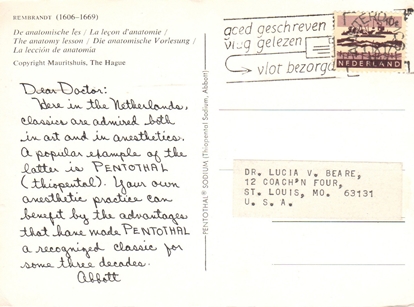 REMBRANDT (1606-1669)
De anatomische les / La leçon d'anatomie /
The anatomy lesson / Die anatomische Vorlesung /
La lección de anatomia
Copyright Mauritshuis, The Hague
Dear Doctor:
Here in the Netherlands,
classics are admired both
in art and in anesthetics.
A popular example of the
latter is PENTOTHAL
(thiopental). Your own
anesthetic practice can
benefit by the advantages
that have made PENTOTHAL
a recognized classic for
some three decades.
Abbott
PENTOTHAL® SODIUM (Thiopental Sodium, Abbott)
goed geschreven
vlug gelezen
vlot bezorgd
NEDERLAND
DR. LUCIA V. BEARE,
12 COACH'N FOUR,
ST. LOUIS, MO. 63131
U. S. A.